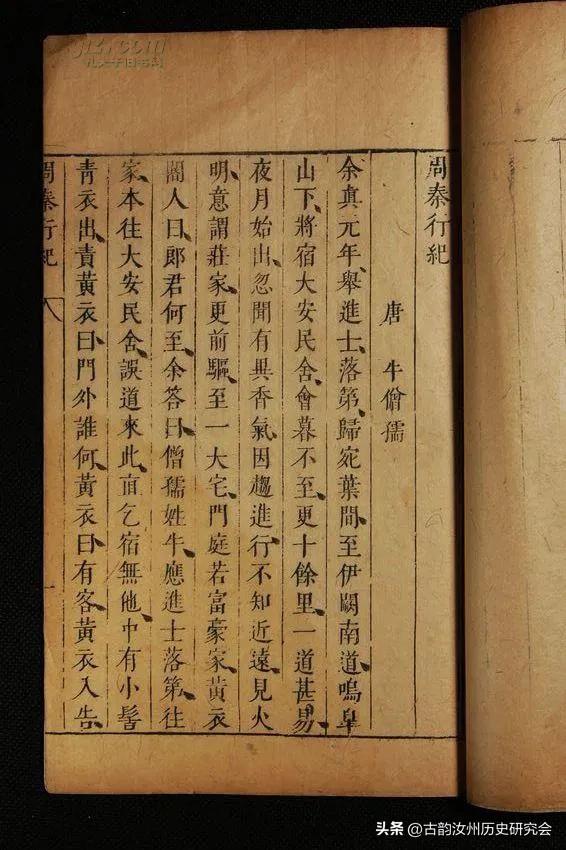 周秦行紀
唐 牛僧孺
余真元年舉進士落第歸宛葉間至伊闕南道鳴皋
山下將宿大安民舍會暮不至更十餘里一道甚易
夜月始出忽聞有異香氣因趨進行不知近遠見火
明意謂莊家更前驅至一大宅門庭若富豪家黃衣
閽人曰郎君何至余答曰僧孺姓牛應進士落第往
家本往大安民舍誤道來此直乞宿無他中有小髻
青衣出責黃衣曰門外誰何黃衣曰有客黃衣入告
周秦行紀 一
头条 @古韵汝州历史研究会